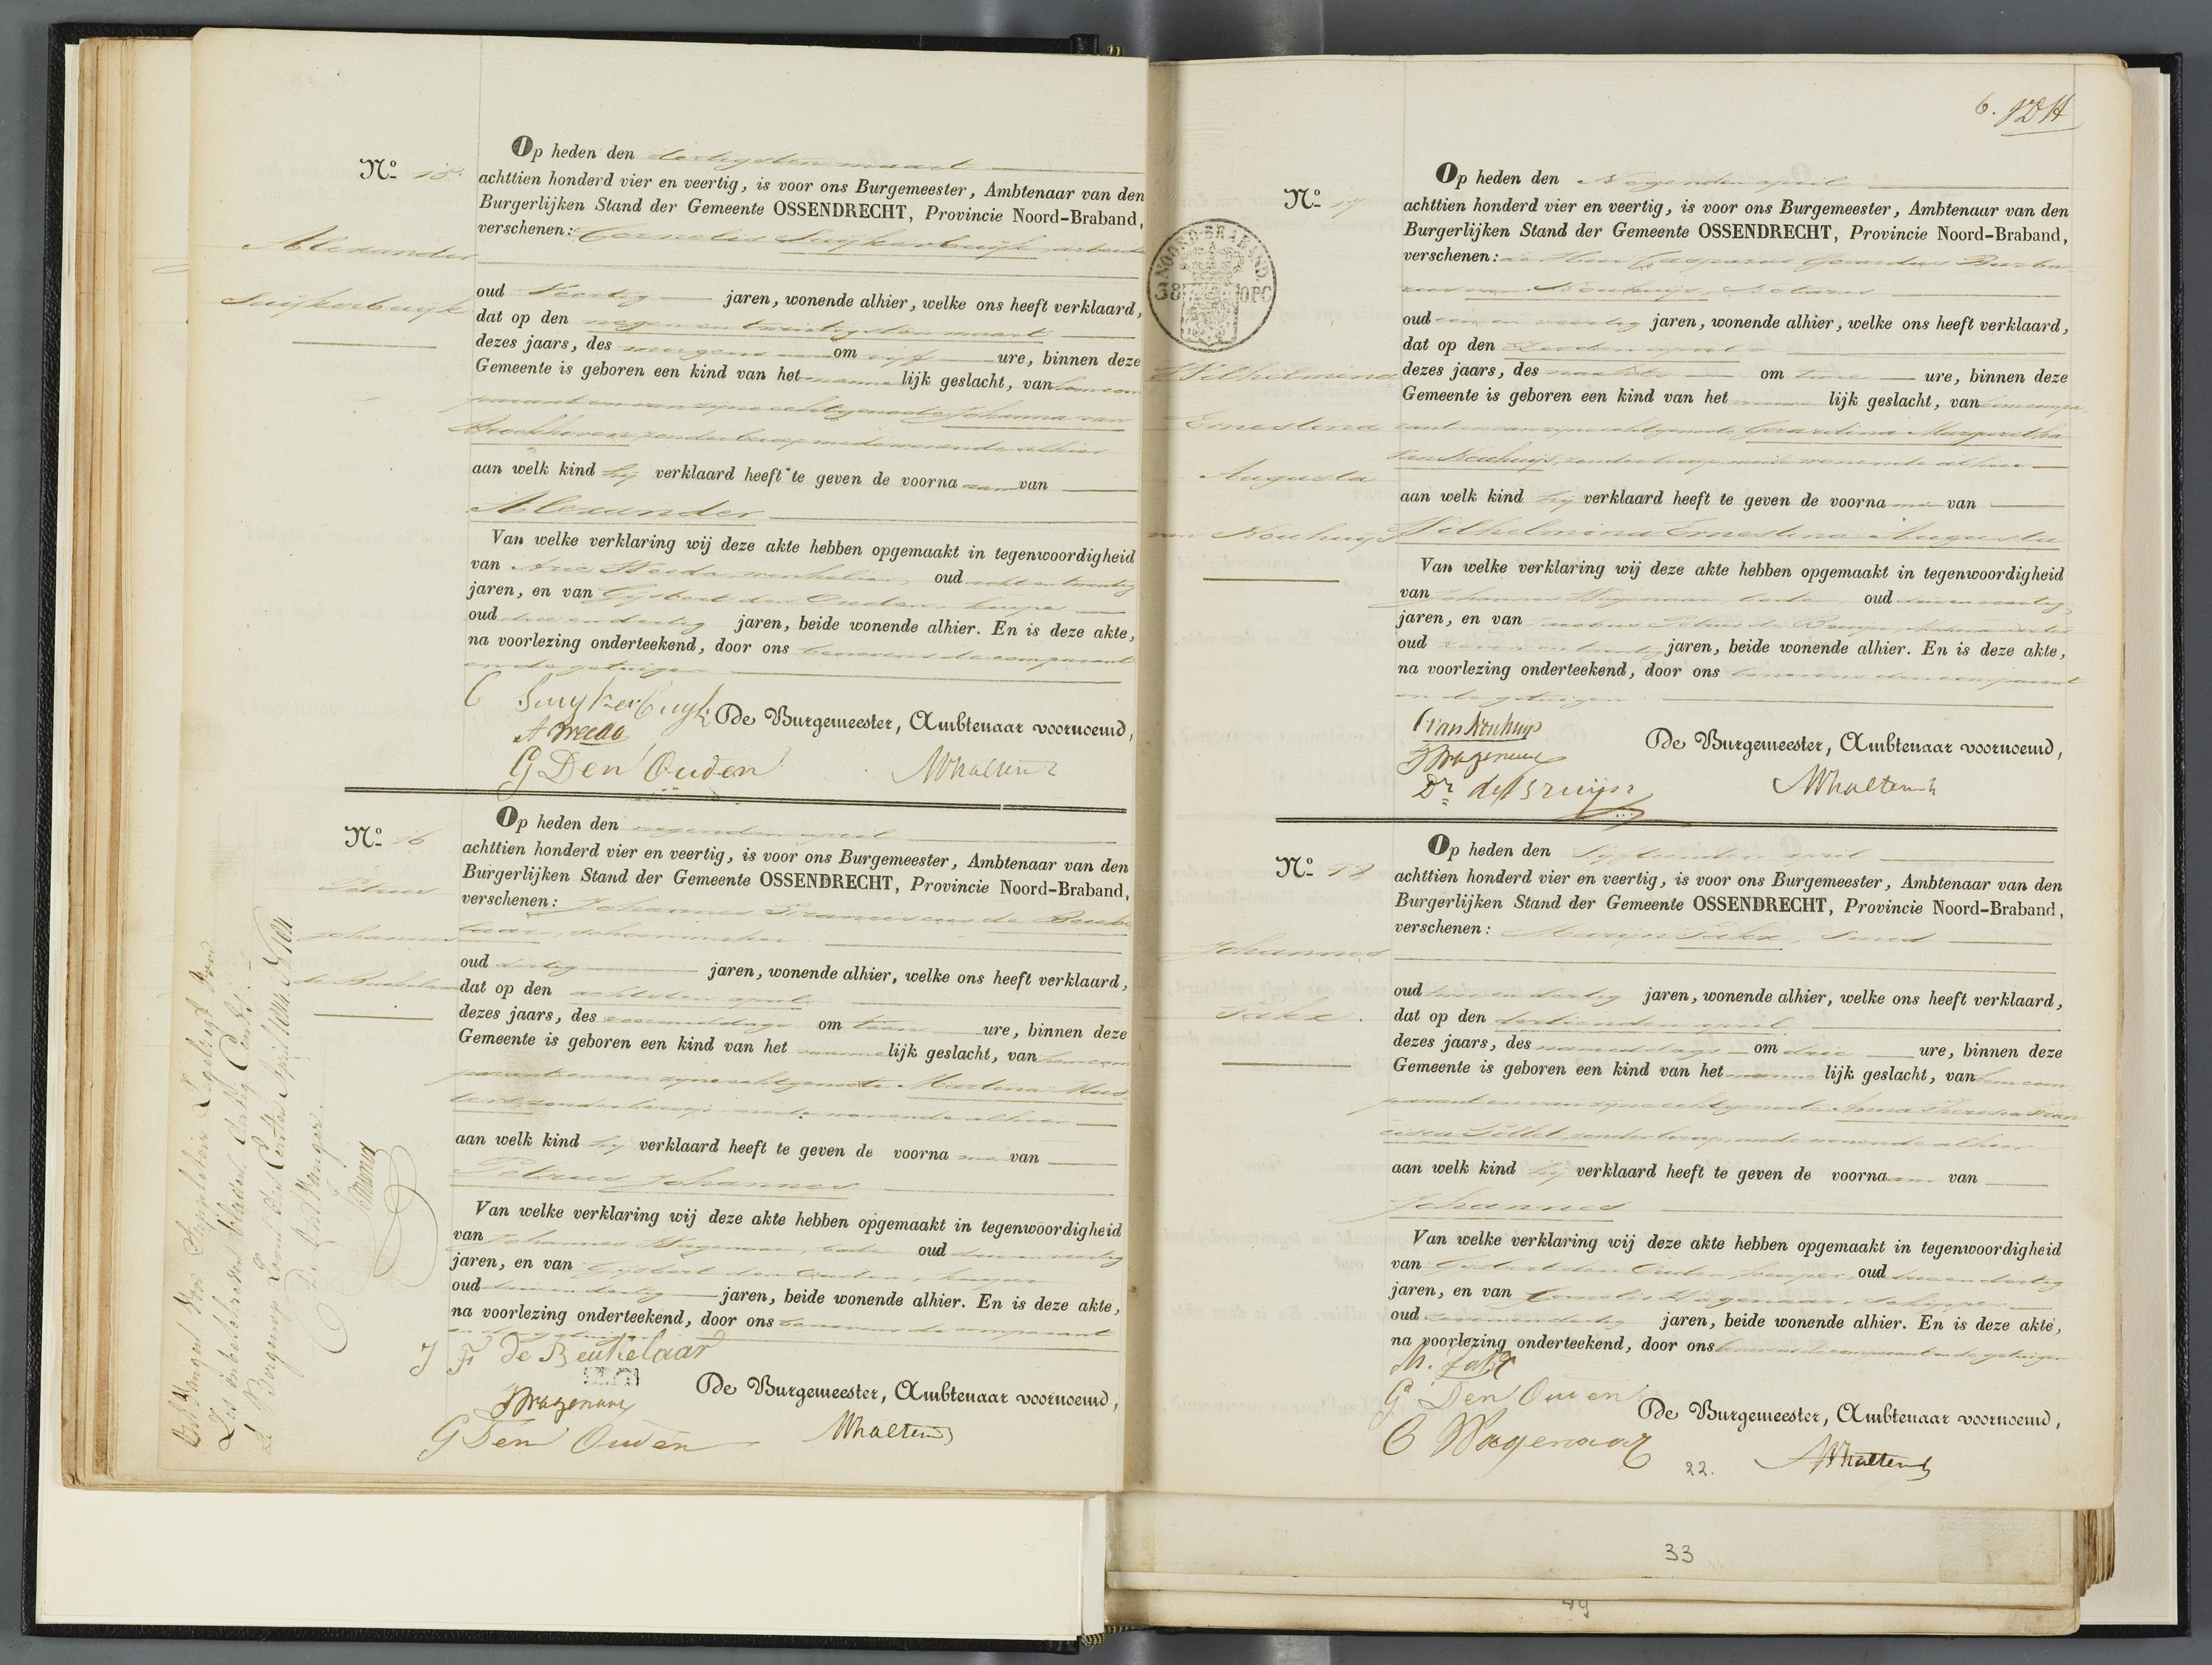 Op heden den dertigsten maart
No 15.
achttien honderd vier en veertig, is voor ons Burgemeester, Ambtenaar van den
Burgerlijken Stand der Gemeente OSSENDRECHT, Provincie Noord-Braband,
verschenen: Cornelis Suijkerbuijk, arbeider
Alexander
Suijkerbuijk
oud Veertig jaren, wonende alhier, welke ons heeft verklaard,
dat op den negen en twintigsten maart
dezes jaars, des morgens om vijf ure, binnen deze
Gemeente is geboren een kind van het mannelijk geslacht, van hem com
parant en van zijne echtgenoote Johanna van
Broekhoven zonder beroep mede wonende alhier
aan welk kind hij verklaard heeft te geven de voornaam van
Alexander
Van welke verklaring wij deze akte hebben opgemaakt in tegenwoordigheid
van Arie Weeda, winkelier, oud acht en twintig
jaren, en van Gijsbert den Ouden, kuiper
oud drie en dertig jaren, beide wonende alhier. En is deze akte,
na voorlezing onderteekend, door ons benevens de comparant
en de getuigen
C Suykerbuyk
De Burgemeester, Ambtenaar voornoemd,
A Weeda
G Den Ouden
Op heden den negenden april
No 16
achttien honderd vier en veertig, is voor ons Burgemeester, Ambtenaar van den
Burgerlijken Stand der Gemeente OSSENDRECHT, Provincie Noord-Braband,
Petrus
verschenen: Johannes Franciscus de Beuke
Johannes
laar, schoenmaker
oud dertig jaren, wonende alhier, welke ons heeft verklaard,
dat op den achtsten april
dezes jaars, des voormiddags om tien ure, binnen deze
Gemeente is geboren een kind van het mannelijk geslacht, van hem com
parant en van zijne echtgenoote Martina
zonder beroep mede wonende alhier
aan welk kind hij verklaard heeft te geven de voorna men van
Petrus Johannes
Van welke verklaring wij deze akte hebben opgemaakt in tegenwoordigheid
van Johannes Wagenaar, bode oud drie en veertig
jaren, en van Gijsbert den Ouden, kuiper
oud drie en dertig jaren, beide wonende alhier. En is deze akte,
na voorlezing onderteekend, door ons benevens de comparant
en de getuigen
J F de Beukelaar
De Burgemeester, Ambtenaar voornoemd,
J Wagenaar
G Den Ouden
Ontvangen voor
De Ontvanger.
6.
Op heden den Negenden april
No 17
achttien honderd vier en veertig, is voor ons Burgemeester, Ambtenaar van den
Burgerlijken Stand der Gemeente OSSENDRECHT, Provincie Noord-Braband,
verschenen: de Heer Gasparus Gerardus Barba
rus van Nouhuijs, Notaris
NOORD-BRABAND
38
oud een en veertig jaren, wonende alhier, welke ons heeft verklaard,
dat op den Zesden april
Wilhelmina
dezes jaars, des om twee ure, binnen deze
Gemeente is geboren een kind van het lijk geslacht, van hem compa
Ernestina
rant en van zijne echtgenoote Gerardina Margaretha
van Nouhuijs, zonder beroep, mede wonende alhier
Augusta
aan welk kind hij verklaard heeft te geven de voorna men van
van Nouhuijs
Wilhelmina Ernestina Augusta
Van welke verklaring wij deze akte hebben opgemaakt in tegenwoordigheid
van Johannes Wagenaar, bode oud drie en veertig
jaren, en van Petrus de Bruijn
oud zeven en twintig jaren, beide wonende alhier. En is deze akte,
na voorlezing onderteekend, door ons benevens den comparant
en de getuigen
van Nouhuijs
J Wagenaar
De Burgemeester, Ambtenaar voornoemd,
Dr de Bruijn
Op heden den Vijftienden april
No 18
achttien honderd vier en veertig, is voor ons Burgemeester, Ambtenaar van den
Burgerlijken Stand der Gemeente OSSENDRECHT, Provincie Noord-Braband,
verschenen: Marijn
Johannes
oud drie en dertig jaren, wonende alhier, welke ons heeft verklaard,
dat op den dertienden april
dezes jaars, des namiddags om drie ure, binnen deze
Gemeente is geboren een kind van het mannelijk geslacht, van hem com
parant en van zijne echtgenoote Anna Theresia Fran
cisca zonder beroep, mede wonende alhier
aan welk kind hij verklaard heeft te geven de voornaam van
Johannes
Van welke verklaring wij deze akte hebben opgemaakt in tegenwoordigheid
van Gijsbert den Ouden kuiper oud drie en dertig
jaren, en van Cornelis Wagenaar, schipper
oud en dertig jaren, beide wonende alhier. En is deze akte,
na voorlezing onderteekend, door ons benevens de comparant en de getuigen
G Den Ouden
De Burgemeester, Ambtenaar voornoemd,
C Wagenaar
22.
33
49